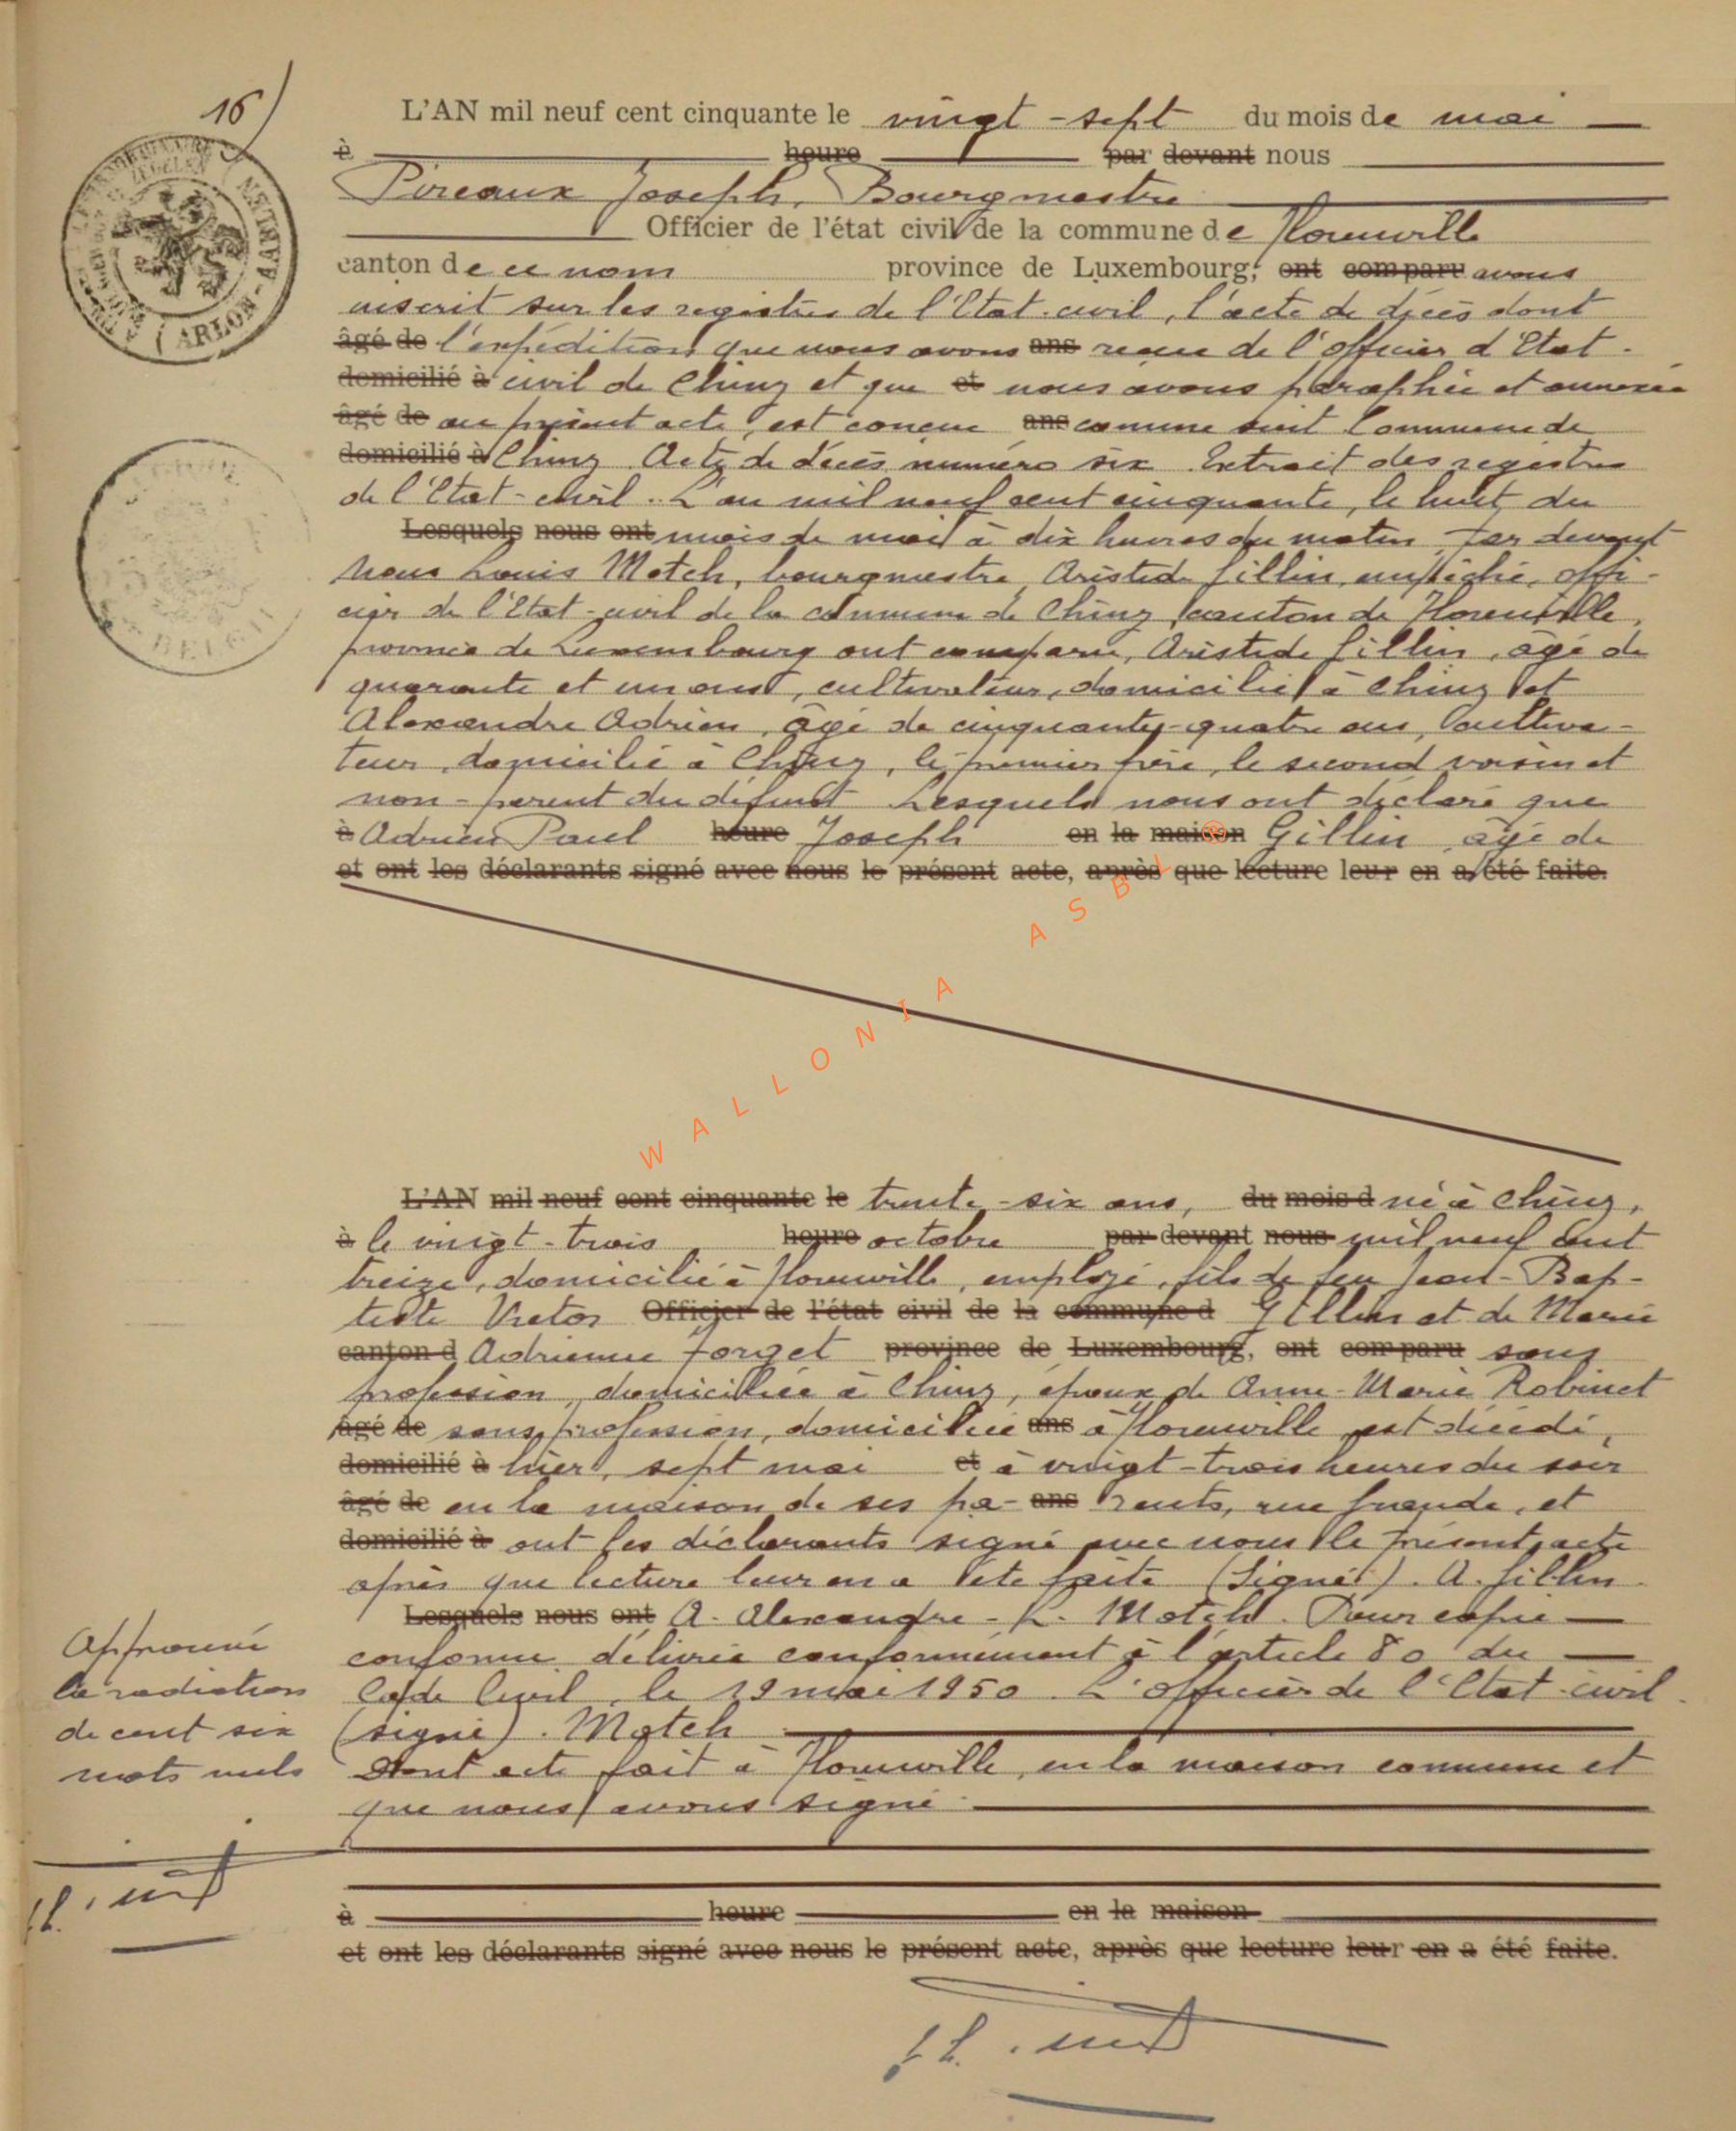 16
ARLON - AARLEN
L'AN mil neuf cent cinquante le vingt-sept du mois de mai
à heure par devant nous
Pireaux Joseph, Bourgmestre
Officier de l'état civil de la commune de Florenville
canton de ce nom province de Luxembourg, ont comparu avons
inscrit sur les registres de l'Etat-civil, l'acte de décès dont
âgé de l'expédition que nous avons ans reçue de l'officier d'Etat-
domicilié à civil de Chiny et que et nous avons paraphée et annexée
âgé de au présent acte, est conçu ans comme suit Commune de
domicilié à Chiny. Acte de décès numéro six. Extrait des registres
de l'Etat-civil. L'an mil neuf cent cinquante, le huit du
Lesquels nous ont mois de mai à dix heures du matin, par devant
Nous Louis Motch, bourgmestre, Aristide Gillin, empêché, offi-
cier de l'Etat-civil de la commune de Chiny, canton de Florenville,
province de Luxembourg ont comparu, Aristide Gillin, âgé de
quarante et un ans, cultivateur, domicilié à Chiny et
Alexandre Adrien, âgé de cinquante-quatre ans, Cultiva-
teur, domicilié à Chiny, le premier frère, le second voisin et
non-parent du défunt Lesquels nous ont déclaré que
à Adrien Paul heure Joseph en la maison Gillin, âgé de
et ont les déclarants signé avec nous le présent acte, après que lecture leur en a été faite.
WALLONIA ASBL ®
L'AN mil neuf cent cinquante le trente-six ans, du mois d né à Chiny,
à le vingt-trois heure octobre par devant nous mil neuf cent
treize, domicilié à Florenville, employé, fils de feu Jean-Bap-
tiste Victor Officier de l'état civil de la commune d Gillin et de Marie
canton d Adrienne Forget province de Luxembourg, ont comparu sans
profession, domiciliée à Chiny, époux de Anne-Marie Robinet
âgé de sans profession, domiciliée ans à Florenville est décédé,
domicilié à hier, sept mai et à vingt-trois heures du soir
âgé de en la maison de ses pa- ans rents, rue Grande, et
domicilié à ont les déclarants signé avec nous le présent acte
après que lecture leur en a été faite (Signé). A. Gillin.
Lesquels nous ont A. Alexandre - L. Motch. Pour copie
conforme délivrée conformément à l'article 80 du
Code Civil, le 19 mai 1950. L'officier de l'Etat-civil.
(signé). Motch
Dont acte fait à Florenville, en la maison commune et
que nous avons signé.
Approuvé
la radiation
de cent six
mots nuls
à heure en la maison
et ont les déclarants signé avec nous le présent acte, après que lecture leur en a été faite.